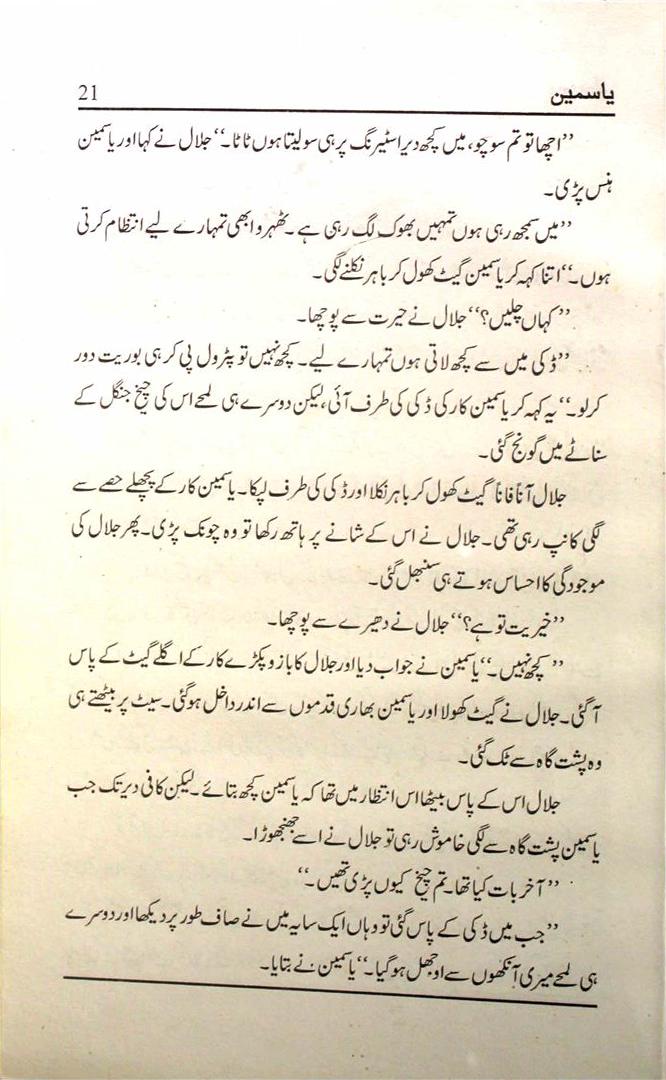 یاسمین 21
’’اچھا تو تم سوچو، میں کچھ دیر اسٹیرنگ پر ہی سو لیتا ہوں ٹاٹا۔‘‘ جلال نے کہا اور یاسمین
ہنس پڑی۔
’’میں سمجھ رہی ہوں تمہیں بھوک لگ رہی ہے۔ ٹھہرو ابھی تمہارے لیے انتظام کرتی
ہوں۔‘‘ اتنا کہہ کر یاسمین گیٹ کھول کر باہر نکلنے لگی۔
’’کہاں چلیں؟‘‘ جلال نے حیرت سے پوچھا۔
’’ڈکی میں سے کچھ لاتی ہوں تمہارے لیے۔ کچھ نہیں تو پٹرول پی کر ہی بوریت دور
کر لو۔‘‘ یہ کہہ کر یاسمین کار کی ڈکی کی طرف آئی، لیکن دوسرے ہی لمحے اس کی چیخ جنگل کے
سناٹے میں گونج گئی۔
جلال آناً فاناً گیٹ کھول کر باہر نکلا اور ڈکی کی طرف لپکا۔ یاسمین کار کے پچھلے حصے سے
لگی کانپ رہی تھی۔ جلال نے اس کے شانے پر ہاتھ رکھا تو وہ چونک پڑی۔ پھر جلال کی
موجودگی کا احساس ہوتے ہی سنبھل گئی۔
’’خیریت تو ہے؟‘‘ جلال نے دھیرے سے پوچھا۔
’’کچھ نہیں۔‘‘ یاسمین نے جواب دیا اور جلال کا بازو پکڑے کار کے اگلے گیٹ کے پاس
آ گئی۔ جلال نے گیٹ کھولا اور یاسمین بھاری قدموں سے اندر داخل ہو گئی۔ سیٹ پر بیٹھتے ہی
وہ پشت گاہ سے ٹک گئی۔
جلال اس کے پاس بیٹھا اس انتظار میں تھا کہ یاسمین کچھ بتائے۔ لیکن کافی دیر تک جب
یاسمین پشت گاہ سے لگی خاموش رہی تو جلال نے اسے جھنجھوڑا۔
’’آخر بات کیا تھا۔ تم چیخ کیوں پڑی تھیں۔‘‘
’’جب میں ڈکی کے پاس گئی تو وہاں ایک سایہ میں نے صاف طور پر دیکھا اور دوسرے
ہی لمحے میری آنکھوں سے اوجھل ہو گیا۔‘‘ یاسمین نے بتایا۔